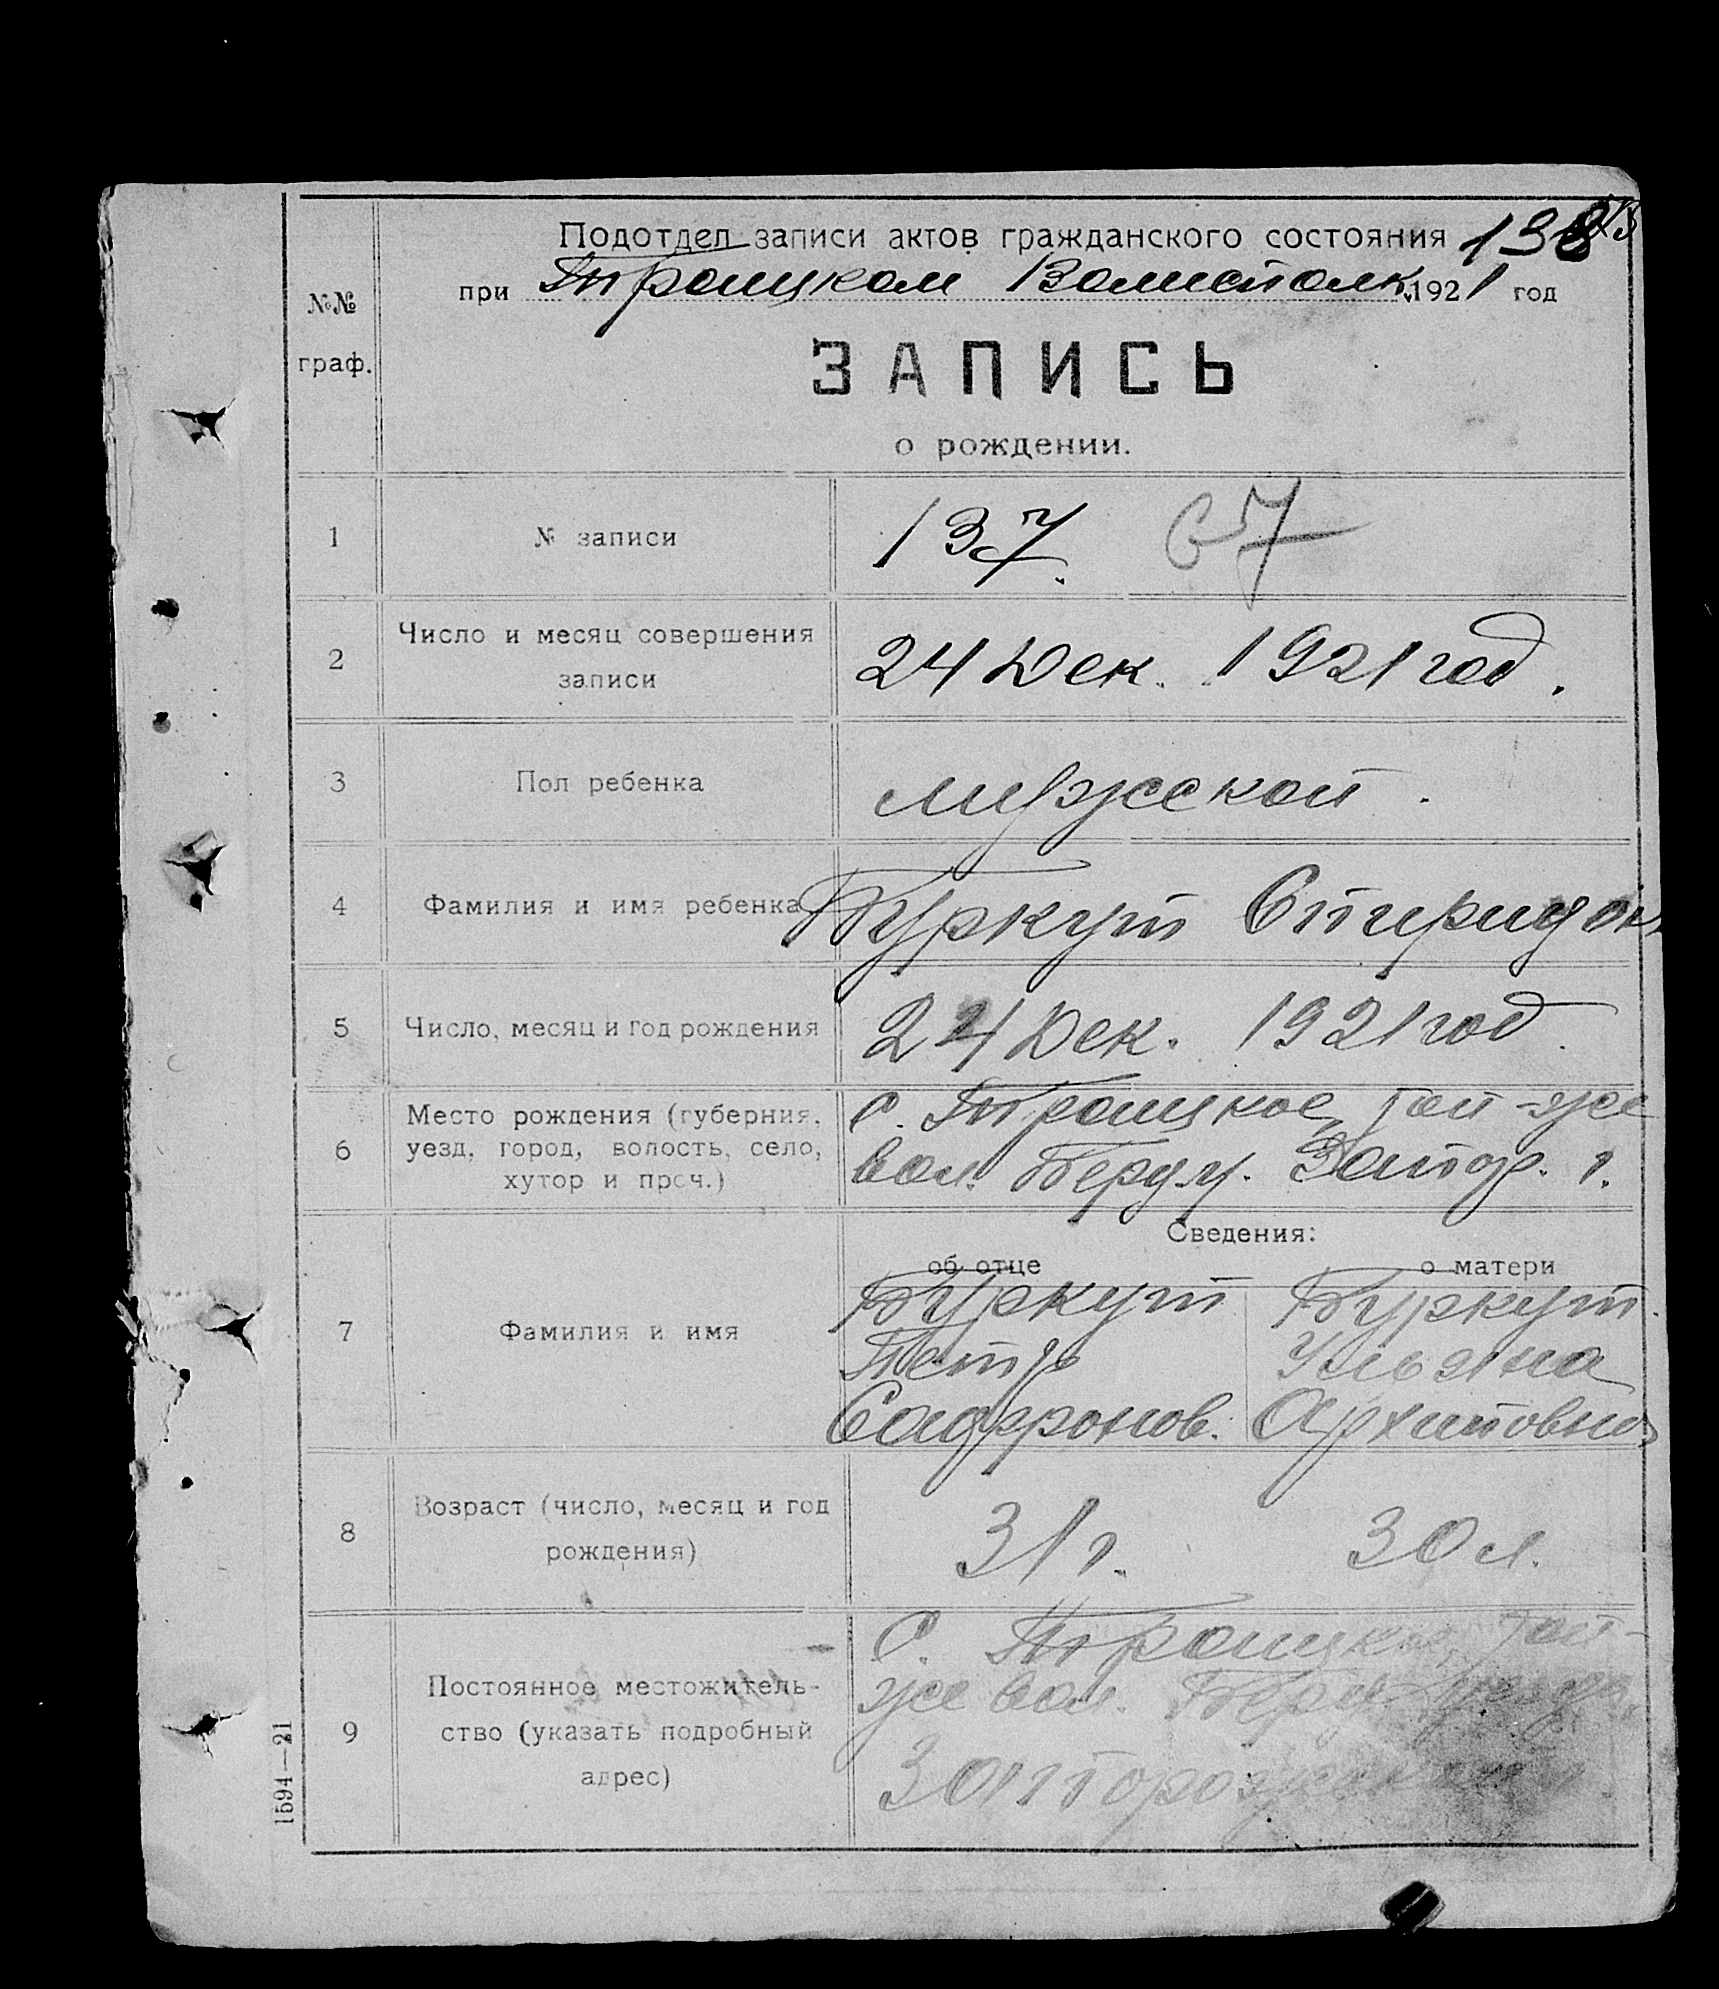 Подотдел записи актов гражданского состояния 138
при Троицком Волисполк. 1921 год
№№
граф.
ЗАПИСЬ
о рождении.
1 № записи 137. 67
2 Число и месяц совершения
записи
24 Дек. 1921 год.
3 Пол ребенка мужской.
4 Фамилия и имя ребенка Буркут Спиридон
5 Число, месяц и год рождения 24 Дек. 1921 год.
6 Место рождения (губерния,
уезд, город, волость, село,
хутор и проч.)
с. Троицкое, той-же
вол. Берд. у. Запор. г.
Сведения:
об отце о матери
7 Фамилия и имя
Буркут Буркут
Петр Ульяна
Сафронов. Архиповна
8 Возраст (число, месяц и год
рождения)
31 г. 30 л.
9 Постоянное местожитель-
ство (указать подробный
адрес)
с. Троицкое, той-
же вол.
Запорожской
1594—21